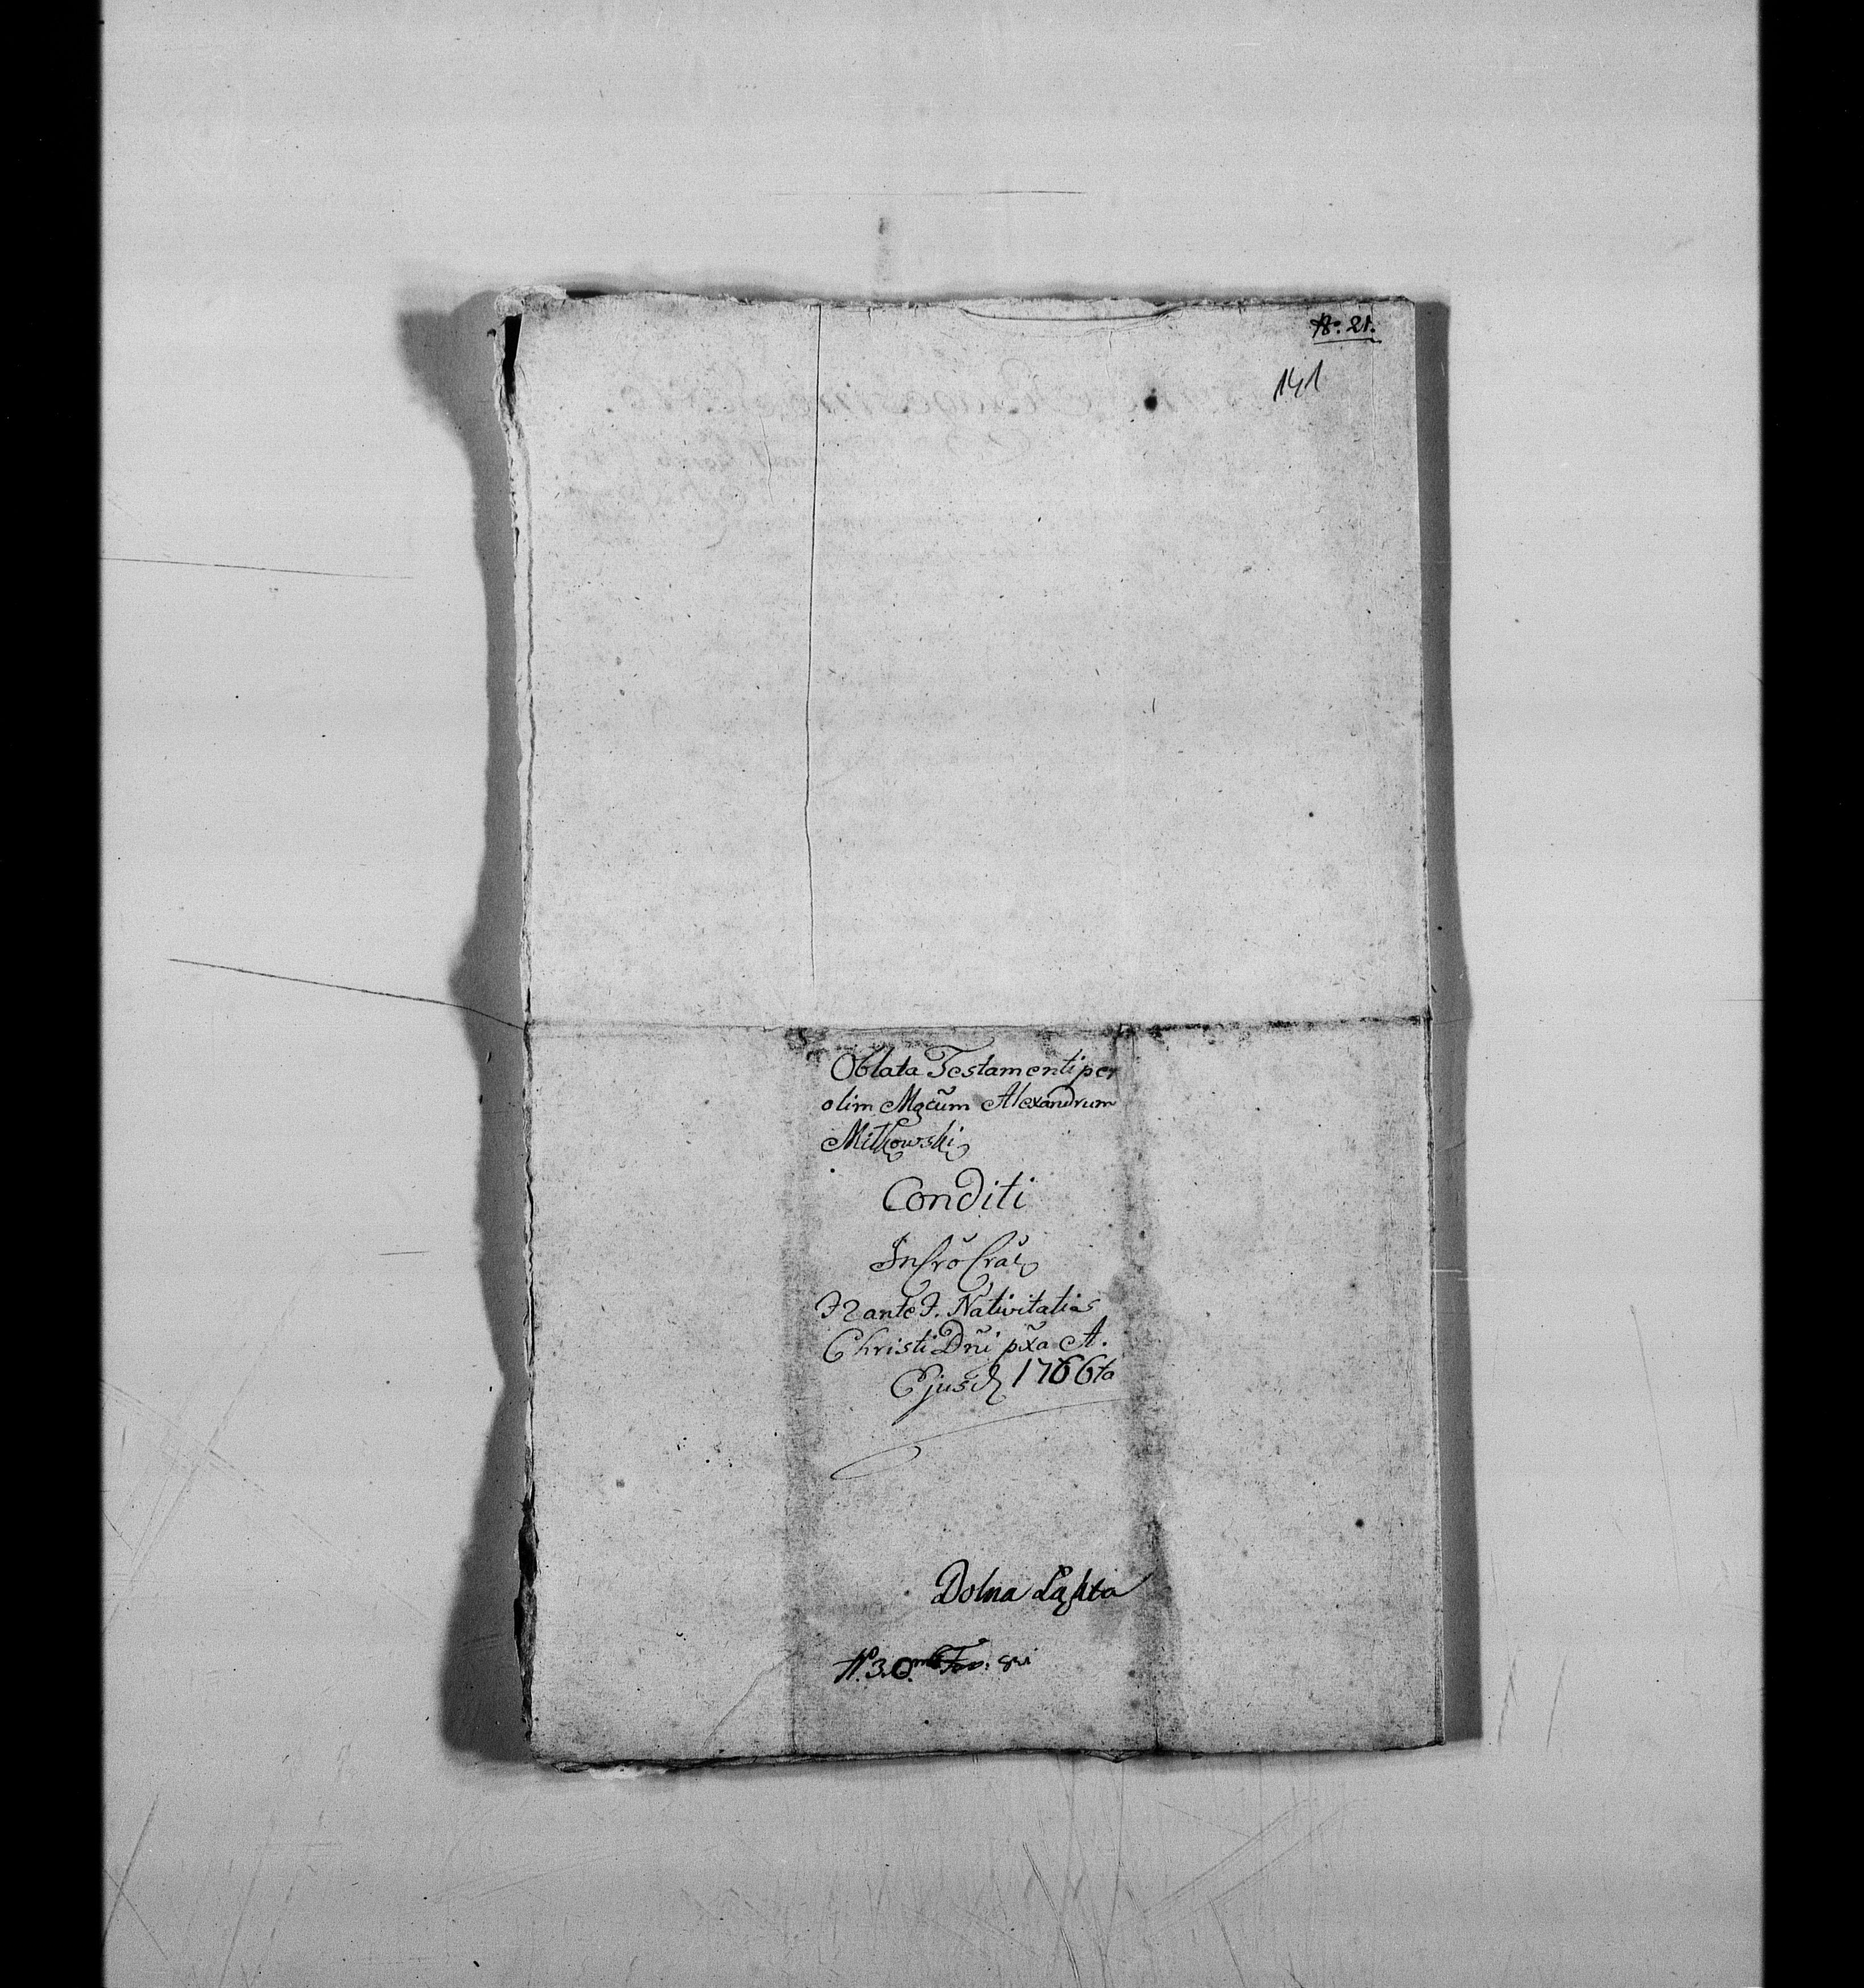 No. 21.
141
Oblata Testamenti per
olim Mgcum Alexandrum
Mitkowski
Conditi
In Cro Crac
F 2 ante F. Nativitatis
Christi Dni pxa A.
Ejusd 1766ta
Dolna Łąkta
N. 30